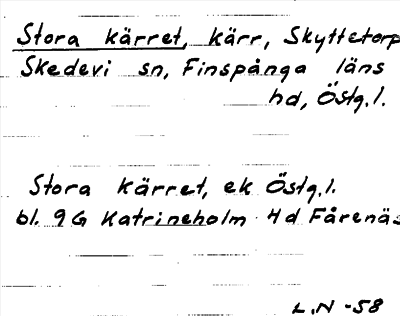 Stora kärret, kärr, Skyttetorp
Skedevi sn, Finspånga läns
hd, Östg.l.
Stora kärret, ek Östg.l.
bl. 9G Katrineholm Hd Fårenäs
L.N -58